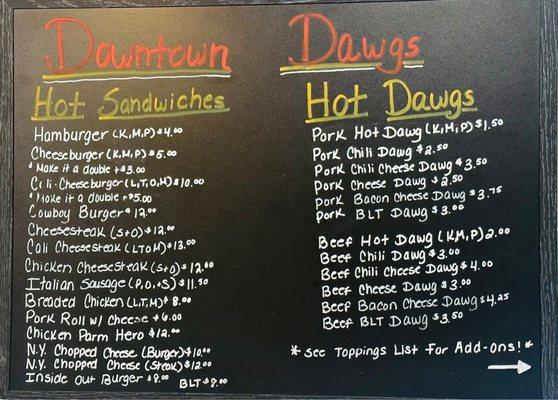 Downtown Dawgs
Hot Sandwiches
Hamburger (K,M,P) $4.00
Cheeseburger (K,M,P) $5.00
* Make it a double +$3.00
Cali-Cheeseburger (L,T,O,M) $10.00
* Make it a double +$5.00
Cowboy Burger $12.00
Cheesesteak (S+O) $12.00
Cali Cheesesteak (LTOM) $13.00
Chicken Cheesesteak (S+O) $12.00
Italian Sausage (P,O,+S) $11.50
Breaded Chicken (L,T,M) $8.00
Pork Roll w/ Cheese $6.00
Chicken Parm Hero $12.00
N.Y. Chopped Cheese (Burger) $10.00
N.Y. Chopped Cheese (Steak) $12.00
Inside Out Burger $9.00 BLT $8.00
Hot Dawgs
Pork Hot Dawg (K,M,P) $1.50
Pork Chili Dawg $2.50
Pork Chili Cheese Dawg $3.50
Pork Cheese Dawg $2.50
Pork Bacon Cheese Dawg $3.75
Pork BLT Dawg $3.00
Beef Hot Dawg (K,M,P) 2.00
Beef Chili Dawg $3.00
Beef Chili Cheese Dawg $4.00
Beef Cheese Dawg $3.00
Beef Bacon Cheese Dawg $4.25
Beef BLT Dawg $3.50
*See Toppings List For Add-ons!*